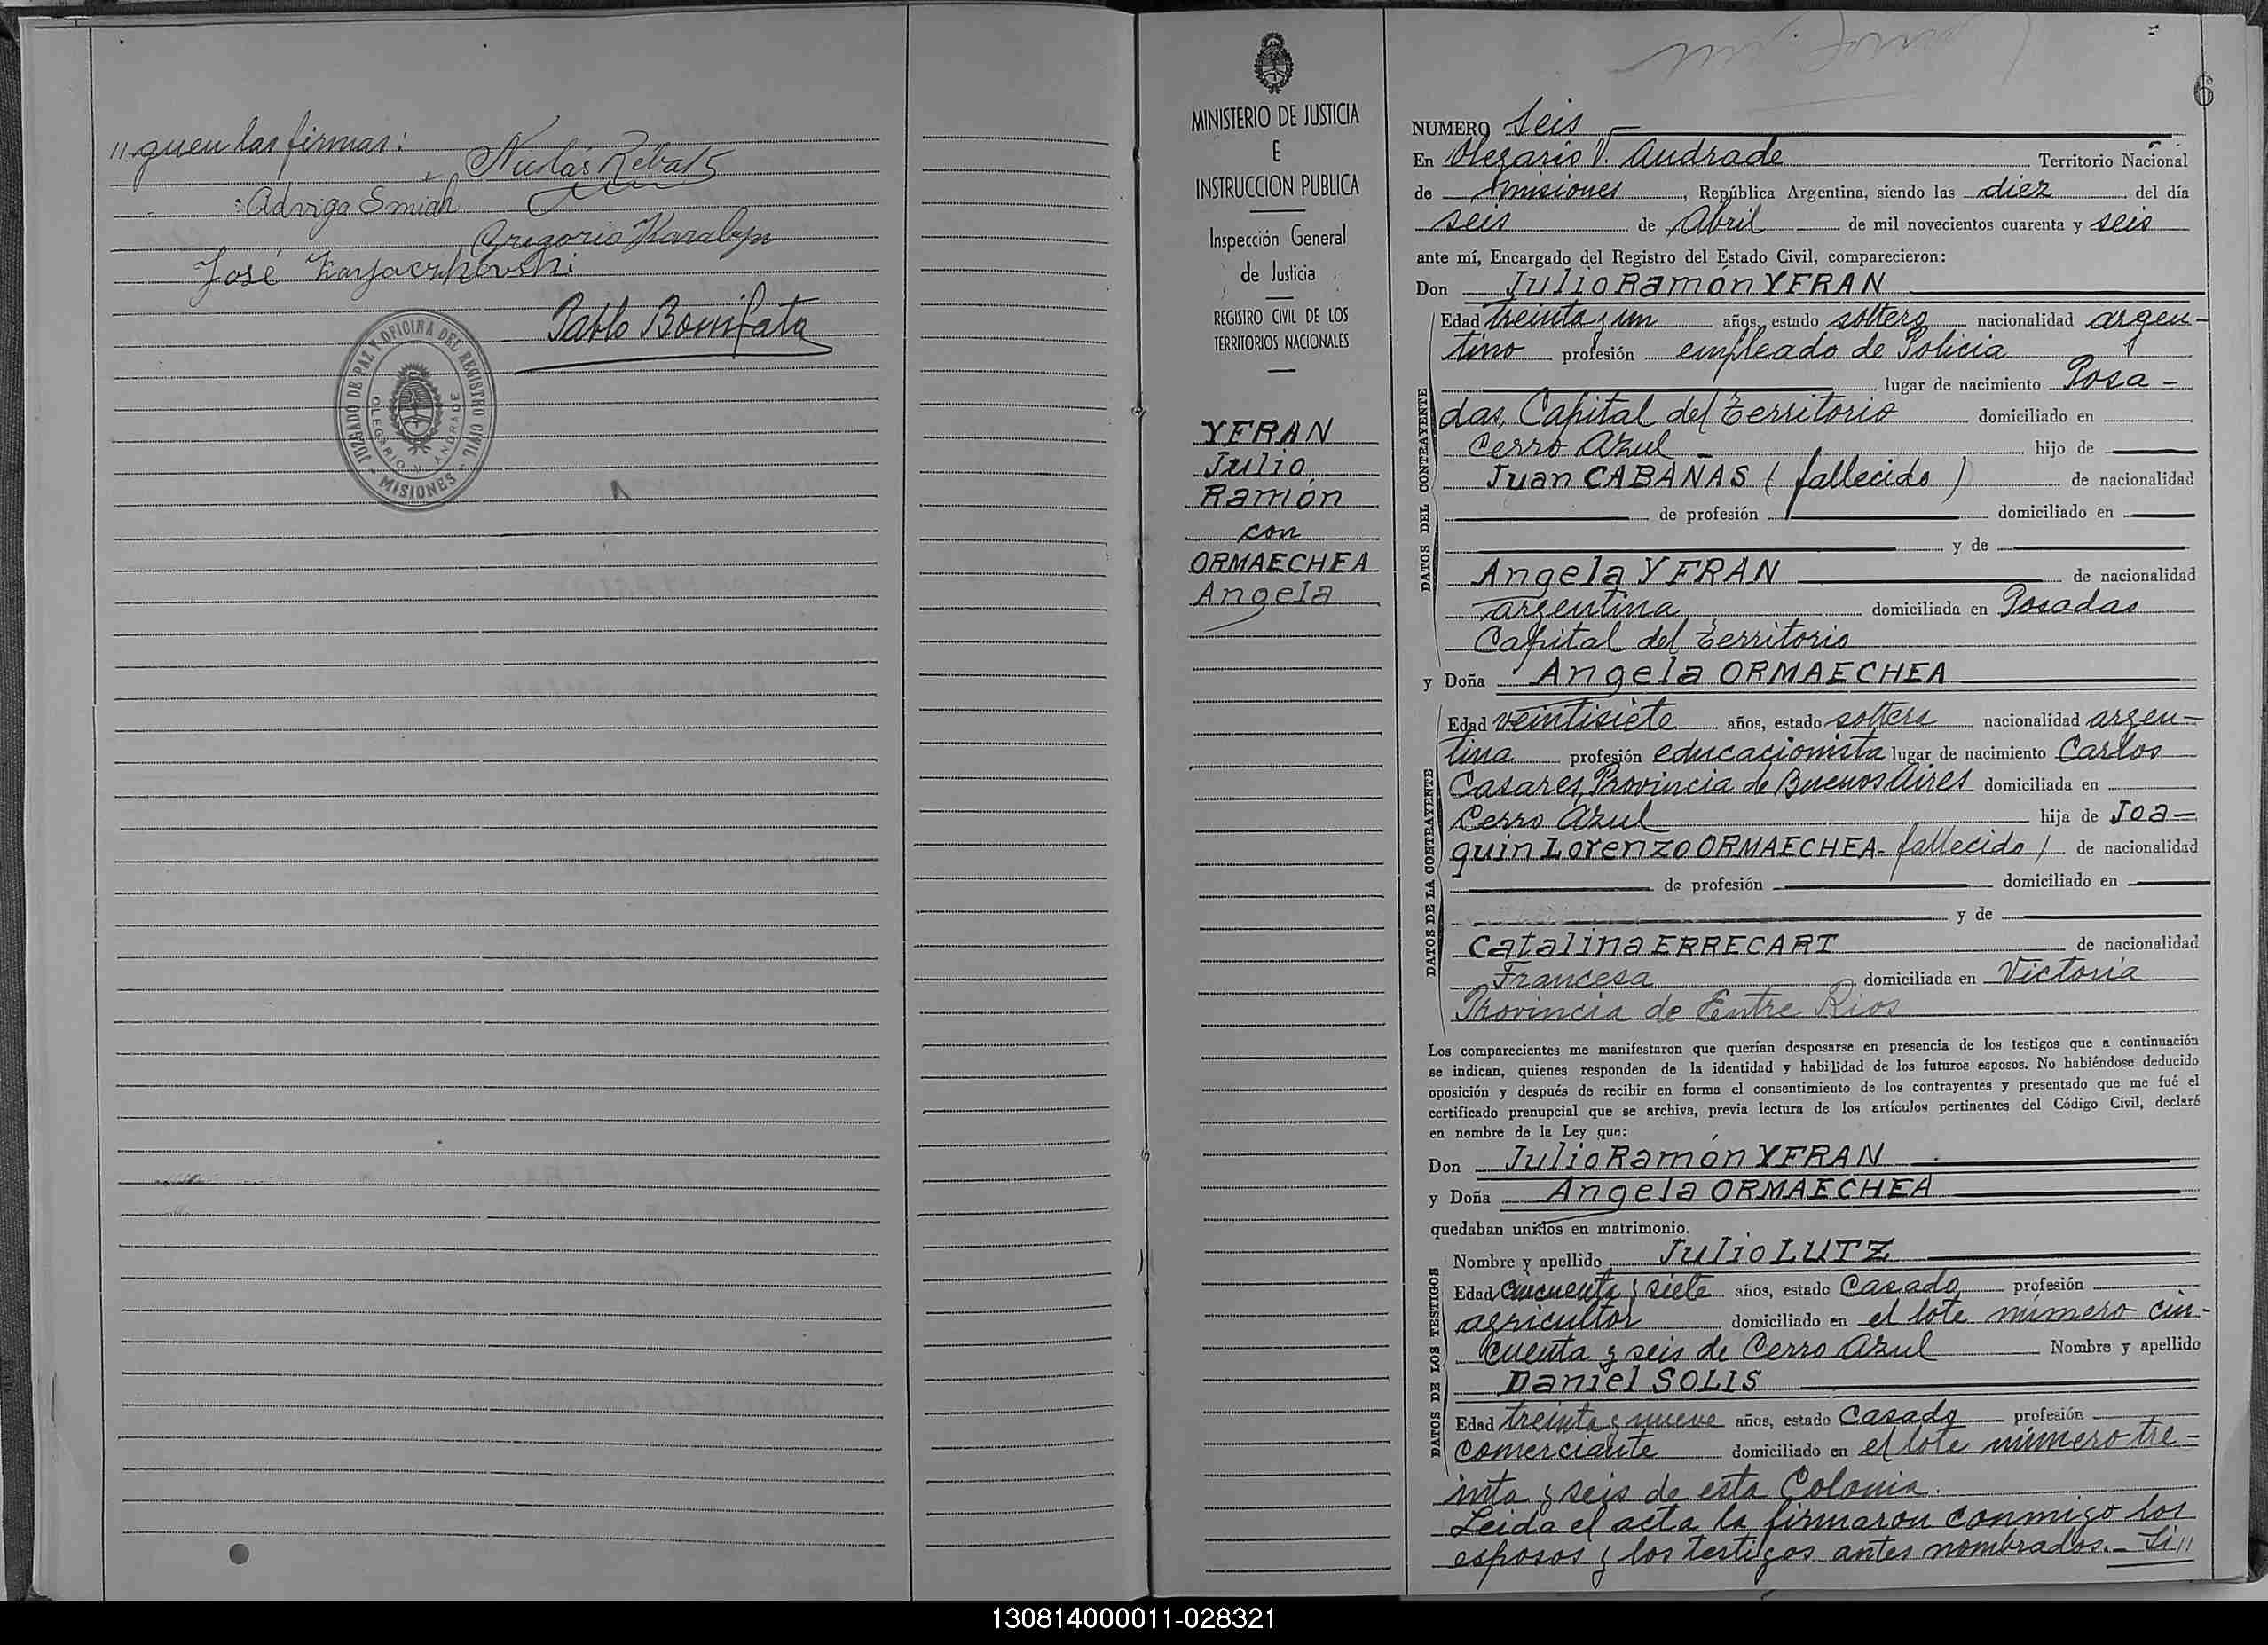 "guen las firmas:
Nicolás Rebals
Adviga Smiah
Gregorio Karabyn
José
Pablo Bonifata
JUZGADO DE PAZ Y OFICINA DEL REGISTRO CIVIL
OLEGARIO V. ANDRADE
MISIONES
MINISTERIO DE JUSTICIA
E
INSTRUCCION PUBLICA
Inspección General
de Justicia
REGISTRO CIVIL DE LOS
TERRITORIOS NACIONALES
YFRAN
Julio
Ramón
con
ORMAECHEA
Angela
6
NUMERO Seis
En Olegario V. Andrade Territorio Nacional
de Misiones, República Argentina, siendo las diez del día
seis de Abril de mil novecientos cuarenta y seis
ante mí, Encargado del Registro del Estado Civil, comparecieron:
Don Julio Ramón YFRAN
DATOS DEL CONTRAYENTE
Edad treinta y un años, estado soltero nacionalidad argen-
tino profesión empleado de Policia
lugar de nacimiento Posa-
das, Capital del Territorio domiciliado en
Cerro Azul hijo de
Juan CABANAS (fallecido) de nacionalidad
de profesión domiciliado en
y de
Angela YFRAN de nacionalidad
argentina domiciliada en Posadas
Capital del Territorio
y Doña Angela ORMAECHEA
DATOS DE LA CONTRAYENTE
Edad veintisiete años, estado soltera nacionalidad argen-
tina profesión educacionista lugar de nacimiento Carlos
Casares, Provincia de Buenos Aires domiciliada en
Cerro Azul hija de Joa-
quin Lorenzo ORMAECHEA- fallecido) de nacionalidad
de profesión domiciliado en
y de
Catalina ERRECART de nacionalidad
Francesa domiciliada en Victoria
Provincia de Entre Rios
Los comparecientes me manifestaron que querían desposarse en presencia de los testigos que a continuación
se indican, quienes responden de la identidad y habilidad de los futuros esposos. No habiéndose deducido
oposición y después de recibir en forma el consentimiento de los contrayentes y presentado que me fué el
certificado prenupcial que se archiva, previa lectura de los artículos pertinentes del Código Civil, declaré
en nombre de la Ley que:
Don Julio Ramón YFRAN
y Doña Angela ORMAECHEA
quedaban unidos en matrimonio.
DATOS DE LOS TESTIGOS
Nombre y apellido Julio LUTZ
Edad cincuenta y siete años, estado Casado profesión
agricultor domiciliado en el lote número cin-
cuenta y seis de Cerro Azul Nombre y apellido
Daniel SOLIS
Edad treinta y nueve años, estado Casado profesión
comerciante domiciliado en el lote número tre-
inta y seis de esta Colonia.
Leida el acta la firmaron conmigo los
esposos y los testigos antes nombrados.- Si"
130814000011-028321